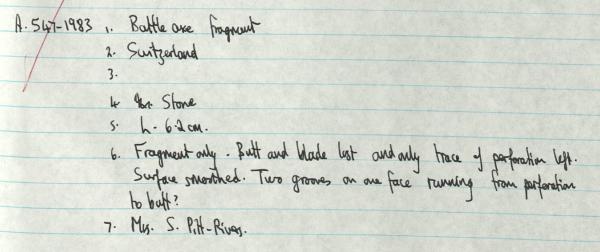 A. 547-1983 1. Battle axe fragment
2. Switzerland
3.
4. Stone
5. L. 6.2cm.
6. Fragment only. Butt and blade lost and only trace of perforation left.
Surface smoothed. Two grooves on one face running from perforation
to butt?
7. Mrs. S. Pitt-Rivers.